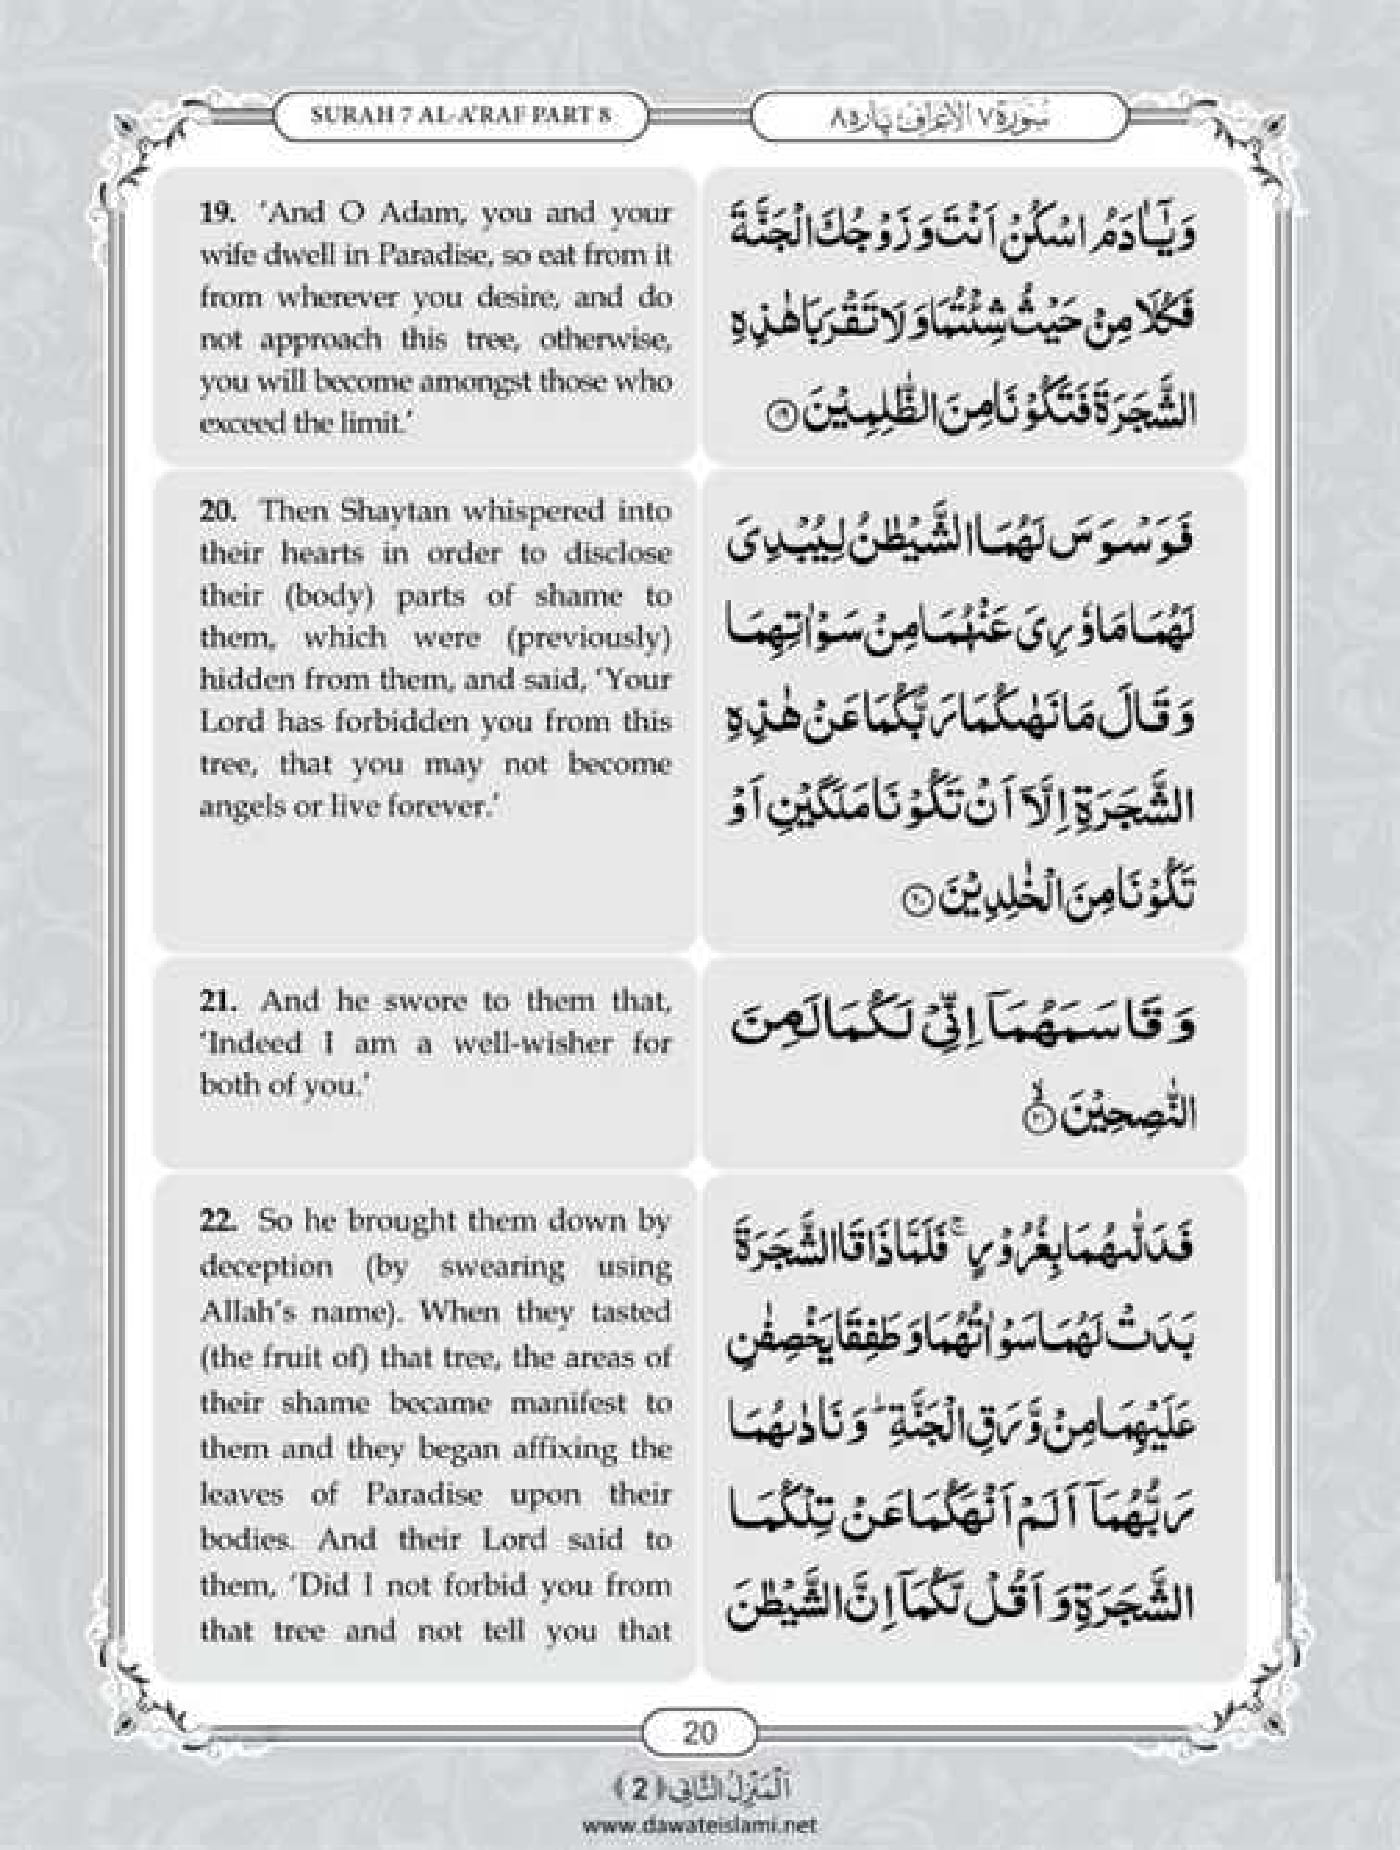 SURAH 7 AL-A'RAF PART 8
سُوْرَةُ ٧ الْاَعْرَاف پَارَه ٨
19. 'And O Adam, you and your
wife dwell in Paradise, so eat from it
from wherever you desire, and do
not approach this tree, otherwise,
you will become amongst those who
exceed the limit.'
وَيٰۤاٰدَمُ اسْكُنْ اَنْتَ وَزَوْجُكَ الْجَنَّةَ
فَكُلَا مِنْ حَيْثُ شِئْتُمَا وَلَا تَقْرَبَا هٰذِهِ
الشَّجَرَةَ فَتَكُوْنَا مِنَ الظّٰلِمِيْنَ ﴿۱۹﴾
20. Then Shaytan whispered into
their hearts in order to disclose
their (body) parts of shame to
them, which were (previously)
hidden from them, and said, 'Your
Lord has forbidden you from this
tree, that you may not become
angels or live forever.'
فَوَسْوَسَ لَهُمَا الشَّيْطٰنُ لِيُبْدِیَ
لَهُمَا مَا وٗرِیَ عَنْهُمَا مِنْ سَوْاٰتِهِمَا
وَقَالَ مَا نَهٰىكُمَا رَبُّكُمَا عَنْ هٰذِهِ
الشَّجَرَةِ اِلَّاۤ اَنْ تَكُوْنَا مَلَكَيْنِ اَوْ
تَكُوْنَا مِنَ الْخٰلِدِيْنَ ﴿۲۰﴾
21. And he swore to them that,
'Indeed I am a well-wisher for
both of you.'
وَقَاسَمَهُمَاۤ اِنِّیْ لَكُمَا لَمِنَ
النّٰصِحِيْنَ ﴿ۙ۲۱﴾
22. So he brought them down by
deception (by swearing using
Allah's name). When they tasted
(the fruit of) that tree, the areas of
their shame became manifest to
them and they began affixing the
leaves of Paradise upon their
bodies. And their Lord said to
them, 'Did I not forbid you from
that tree and not tell you that
فَدَلّٰىهُمَا بِغُرُوْرٍ ۚ فَلَمَّا ذَاقَا الشَّجَرَةَ
بَدَتْ لَهُمَا سَوْاٰتُهُمَا وَطَفِقَا يَخْصِفٰنِ
عَلَيْهِمَا مِنْ وَّرَقِ الْجَنَّةِ ؕ وَنَادٰىهُمَا
رَبُّهُمَاۤ اَلَمْ اَنْهَكُمَا عَنْ تِلْكُمَا
الشَّجَرَةِ وَاَقُلْ لَّكُمَاۤ اِنَّ الشَّيْطٰنَ
20
اَلْمَنْزِلُ الثَّانِی ﴿2﴾
www.dawateislami.net